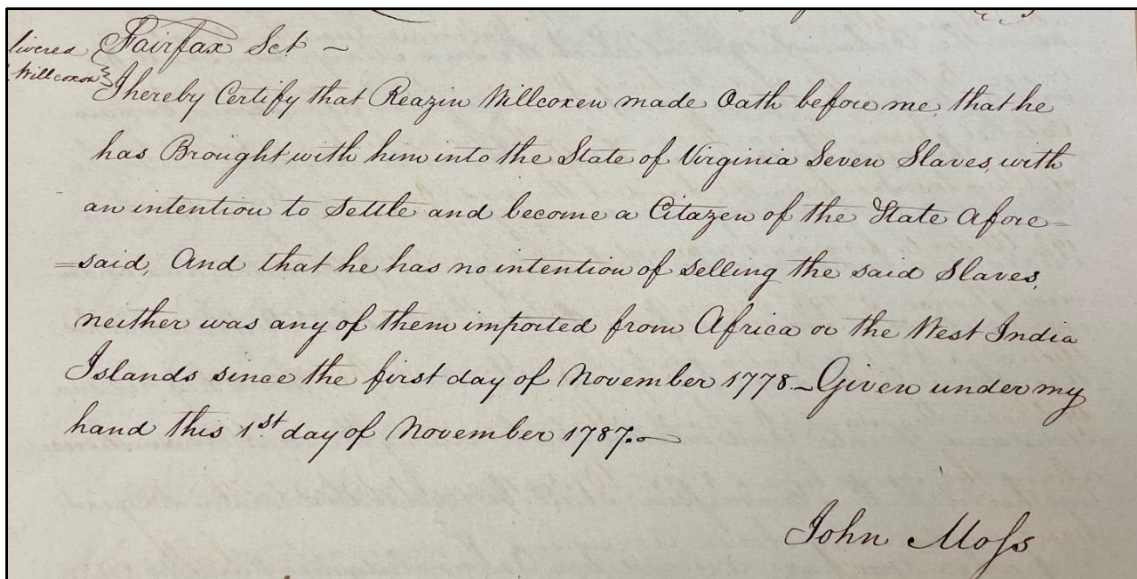 livered
Willcoxon
Fairfax Sct –
I hereby Certify that Reazin Willcoxen made Oath before me, that he
has Brought with him into the State of Virginia Seven Slaves, with
an intention to Settle and become a Citazen of the State afore=
=said, And that he has no intention of Selling the said Slaves,
neither was any of them imported from Africa or the West India
Islands since the first day of November 1778 – Given under my
hand this 1st. day of November 1787. –
John Moſs